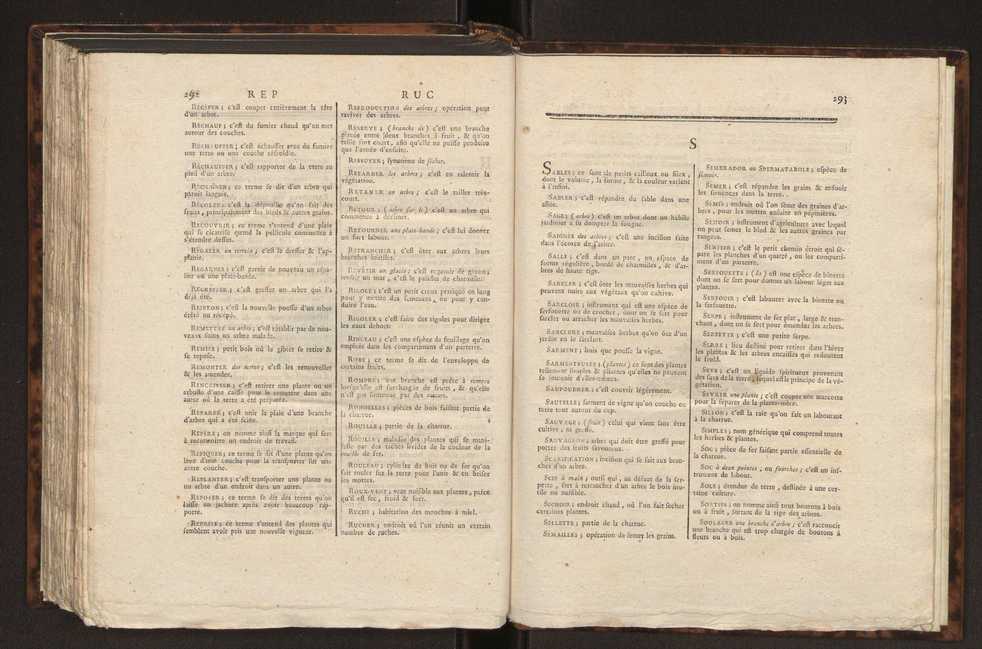 292 REP
RECEPER ; c'est couper entièrement la tête
d'un arbre.
RÉCHAUF ; c'est du fumier chaud qu'on met
autour des couches.
RÉCHAUFFER ; c'est échauffer avec du fumier
une terre ou une couche réfroidie.
RÉCHAUSSER ; c'est rapporter de la terre au
pied d'un arbre.
ce terme se dit d'un arbre qui
paroît languir.
RÉCOLTE ; c'est la dépouille qu'on fait des
fruits, principalement des bleds & autres grains.
RECOUVRIR ; ce terme s'entend d'une plaie
qui se cicatrise quand la pellicule commence à
s'étendre dessus.
RÉGALER un terrein ; c'est le dresser & l'ap-
planir.
REGARNIR ; c'est garnir de nouveau un espa-
lier ou une plate-bande.
REGREFFER ; c'est greffer un arbre qui l'a
déjà été.
REJETTON ; c'est la nouvelle pousse d'un arbre
étêté ou récepé.
REMETTRE un arbre ; c'est rétablir par de nou-
veaux soins un arbre malade.
REMISE ; petit bois où le gibier se retire &
se repose.
REMONTER des terres ; c'est les renouveller
& les amender.
RENCAISSER ; c'est retirer une plante ou un
arbuste d'une caisse pour le remettre dans une
autre où la terre a été préparée.
REPARER ; c'est unir la plaie d'une branche
d'arbre qui a été sciée.
REPERE ; on nomme ainsi la marque qui sert
à reconnoître un endroit de travail.
REPIQUER ; ce terme se dit d'une plante qu'on
leve d'une couche pour la transporter sur une
autre couche.
REPLANTER ; c'est transporter une plante ou
un arbre d'un endroit dans un autre.
REPOSER ; ce terme se dit des terres qu'on
laisse en jachere après avoir beaucoup rap-
porté.
REPRISE ; ce terme s'entend des plantes qui
semblent avoir pris une nouvelle vigueur.
RUC
REPRODUCTION des arbres ; opération pour
raviver des arbres.
RESERVE ; ( branche de ) c'est une branche
placée entre deux branches à fruit , & qu'on
taille fort court, afin qu'elle ne puisse produire
que l'année d'ensuite.
synonime de sécher.
RETARDER les arbres ; c'est en ralentir la
végétation.
un arbre ; c'est le tailler très-
court.
RETOUR ; ( arbre sur le ) c'est un arbre qui
commence à décliner.
RETOURNER une plate-bande ; c'est lui donner
un fort labour.
RETRANCHER ; c'est ôter aux arbres leurs
branches inutiles.
c'est le palisser de charmilles.
RIGOLE ; c'est un petit creux pratiqué en long
pour y mettre des semences, ou pour y con-
duire l'eau.
RIGOLER ; c'est faire des rigoles pour diriger
les eaux dehors.
RINCEAU ; c'est une espèce de feuillage qu'on
emploie dans les compartimens d'un parterre.
ROBE ; ce terme se dit de l'enveloppe de
certains fruits.
ROMPRE ; une branche est prête à rompre
lorsqu'elle est surchargée de fruits , & qu'elle
n'est pas soutenue par des étais.
ROUELLES ; pièces de bois faisant partie de
la charrue.
ROUILLE ; partie de la charrue.
ROUILLE ; maladie des plantes qui se mani-
feste par des taches livides de la couleur de la
rouille de fer.
ROULEAU ; cylindre de bois ou de fer qu'on
fait rouler sur la terre pour l'unir & en briser
les mottes.
ROUX-VENT ; vent nuisible aux plantes, parce
qu'il est sec, froid & fort.
RUCHE ; habitation des mouches à miel.
RUCHER ; endroit où l'on réunit un certain
nombre de ruches.
293
S
SABLES ; ce sont de petits cailloux ou silex,
dont le volume , la forme , & la couleur varient
à l'infini.
SABLER ; c'est répandre du sable dans une
allée.
( arbre ) c'est un arbre dont un habile
jardinier a su dompter la fougue.
SAIGNER des arbres ; c'est une incision faite
dans l'écorce de l'arbre.
SALLE ; c'est dans un parc , un espace de
forme régulière, bordé de charmilles , & d'ar-
bres de haute tige.
SARCLER ; c'est ôter les mauvaises herbes qui
peuvent nuire aux végétaux qu'on cultive.
SARCLOIR ; instrument qui est une espèce de
serfouette ou de crochet , dont on se sert pour
sarcler ou arracher les mauvaises herbes.
SARCLURE ; mauvaises herbes qu'on ôte d'un
jardin en le sarclant.
SARMENT ; bois que pousse la vigne.
SARMENTEUSES ; ( plantes ) ce sont des plantes
tellement souples & pliantes qu'elles ne peuvent
se soutenir d'elles-mêmes.
SAUPOUDRER ; c'est couvrir légerement.
SAUTELLE ; sarment de vigne qu'on couche en
terre tout autour du cep.
SAUVAGE ; ( fruit ) celui qui vient sans être
cultivé , ni greffé.
SAUVAGEON ; arbre qui doit être greffé pour
porter des fruits savoureux.
SCARIFICATION ; incision qui se fait aux bran-
ches d'un arbre.
SCIE à main ; outil qui , au défaut de la ser-
pette , sert à retrancher d'un arbre le bois inu-
tile ou nuisible.
SÉCHOIR ; endroit chaud , où l'on fait sécher
certaines plantes.
SELLETTE ; partie de la charrue.
SEMAILLES ; opération de semer les grains.
SEMERADOR ou SPERMATABOLE ; espèce de
semoir.
SEMER ; c'est répandre les grains & enfouir
les semences dans la terre.
SEMIS ; endroit où l'on seme des graines d'ar-
bres , pour les mettre ensuite en pépinières.
SEMOIR ; instrument d'agriculture avec lequel
on peut semer le bled & les autres graines par
rangées.
SENTIER ; c'est le petit chemin étroit qui sé-
pare les planches d'un quarré , ou les comparti-
mens d'un parterre.
SERFOUETTE ; ( la ) est une espèce de binette
dont on se sert pour donner un labour léger aux
plantes.
SERFOUIR ; c'est labourer avec la binette ou
la serfouette.
SERPE ; instrument de fer plat , large & tran-
chant , dont on se sert pour émonder les arbres.
SERPETTE ; c'est une petite serpe.
SERRE ; lieu destiné pour retirer dans l'hiver
les plantes & les arbres encaissés qui redoutent
le froid.
SEVE ; c'est un liquide spiritueux provenant
des sucs de la terre, lequel est le principe de la vé-
gétation.
SEVRER une plante ; c'est couper une marcotte
pour la séparer de la plante-mère.
SILLON ; c'est la raie qu'on fait en labourant
à la charrue.
SIMPLES ; nom générique qui comprend toutes
les herbes & plantes.
SOC ; pièce de fer faisant partie essentielle de
la charrue.
SOC à deux pointes , ou fourchus ; c'est un ins-
trument de labour.
SOLE ; étendue de terre , destinée à une cer-
taine culture.
SORTIES ; on nomme ainsi tout boutons à bois
ou à fruit , sortant de la tige des arbres.
SOULAGER une branche d'arbre ; c'est raccourcir
une branche qui est trop chargée de boutons à
fleurs ou à bois.